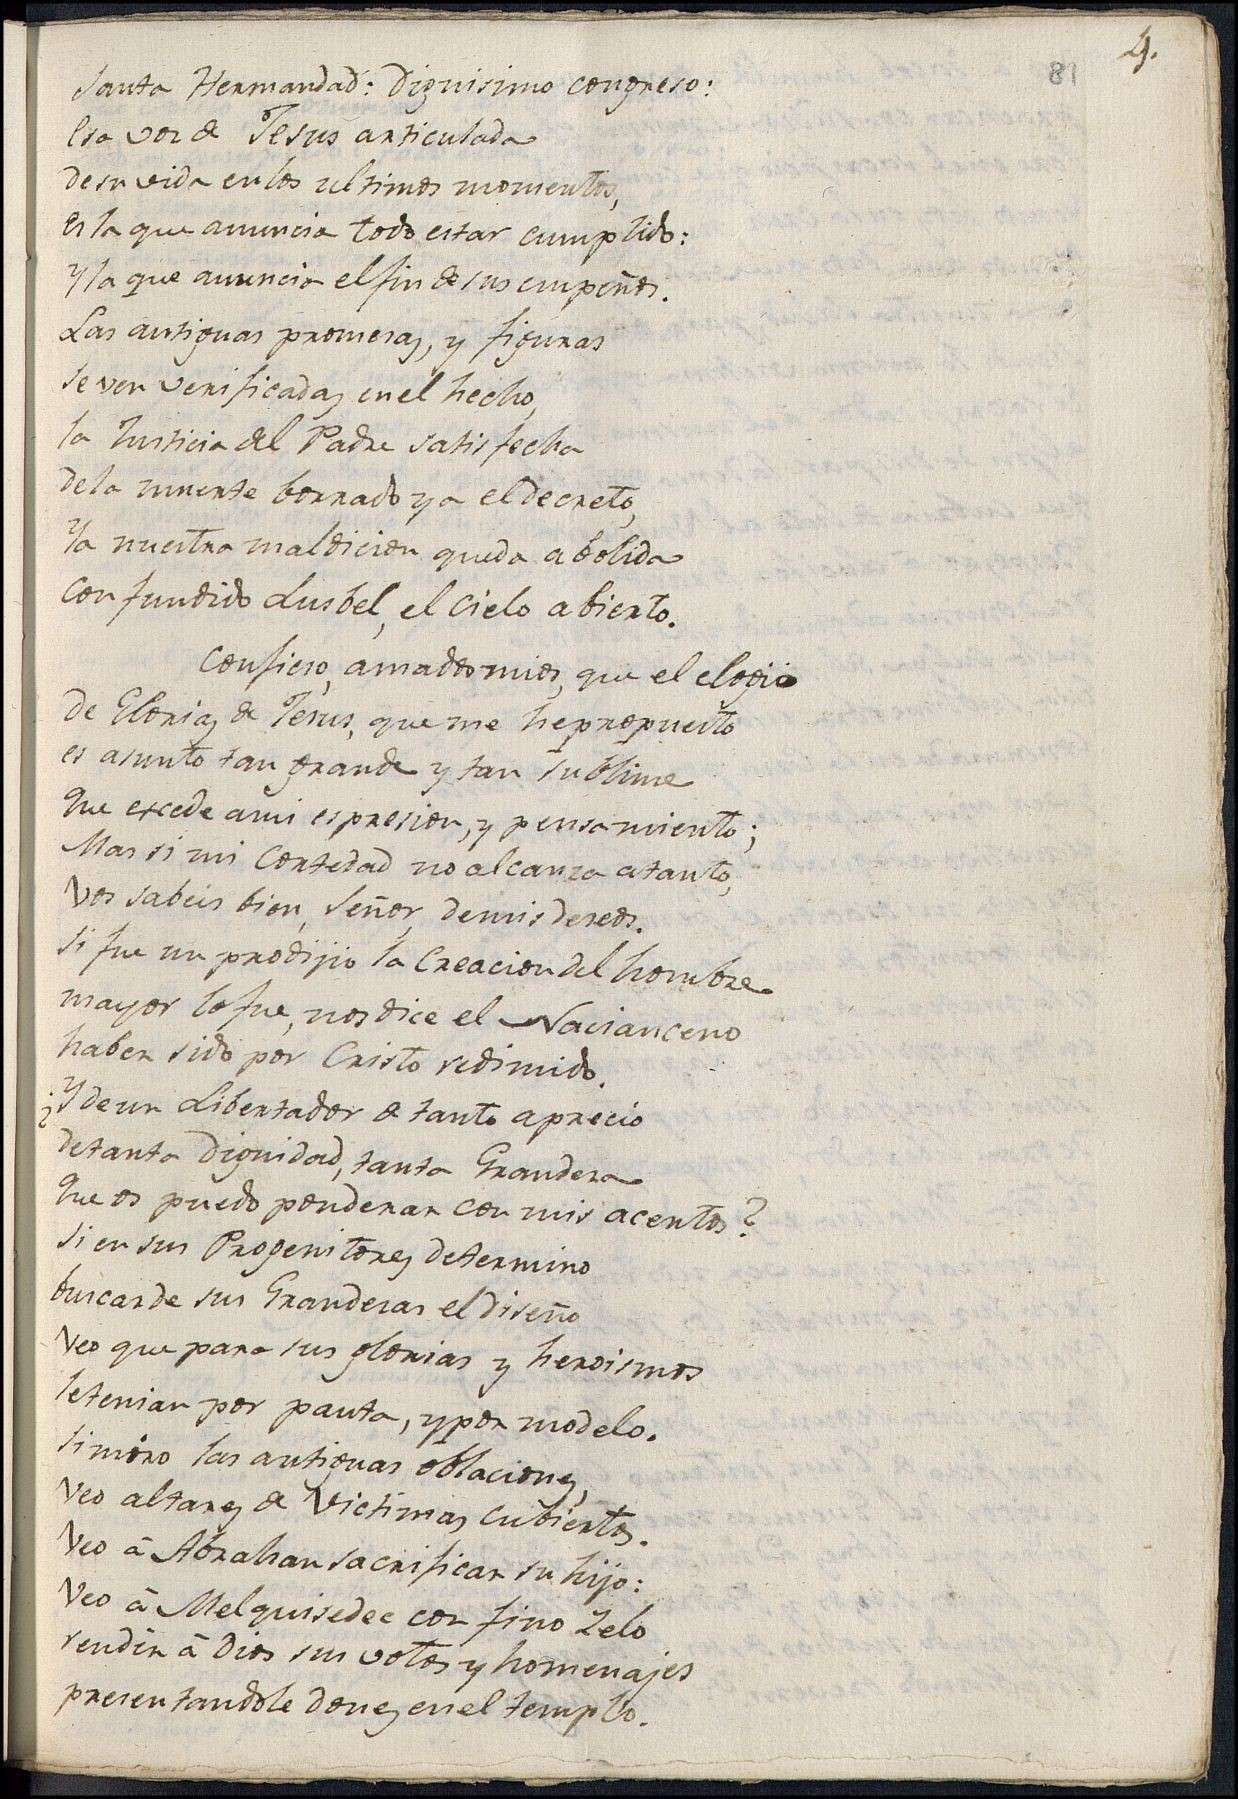 4.
81
Santa Hermandad: Dignisimo congreso:
Esa voz de Jesus articulada
de su vida en los ultimos momentos,
es la que anuncia todo estar cumplido:
y la que anuncia el fin de sus empeños.
Las antiguas promesas, y figuras
se ven verificadas en el hecho,
la Justicia del Padre satisfecha
de la muerte borrado ya el decreto,
Ya nuestra maldicion queda abolida
confundido Lusbel, el cielo abierto.
Confieso, amados mios, que el elogio
de Glorias de Jesus, que me he propuesto
es asunto tan grande y tan sublime
que excede a mi espresion, y pensamiento;
Mas si mi Cortedad no alcanza a tanto,
Vos sabeis bien, Señor, de mis deseos.
Si fue un prodijio la Creacion del hombre
mayor lo fue, nos dice el Nacianceno
haber sido por Cristo redimido.
¿Y de un Libertador de tanto aprecio
de tanta Dignidad, tanta Grandeza
que os puedo ponderar con mis acentos?
Si en sus Progenitores determino
buscar de sus Grandesas el Diseño
Veo que para sus glorias y heroismos
le tenian por pauta, y por modelo.
Si miro las antiguas oblaciones,
Veo altares de Victimas cubiertos.
Veo á Abrahan sacrificar su hijo:
Veo á Melquisedec con fino Zelo
rendir á Dios sus votos y homenajes
presentandole dones en el templo.